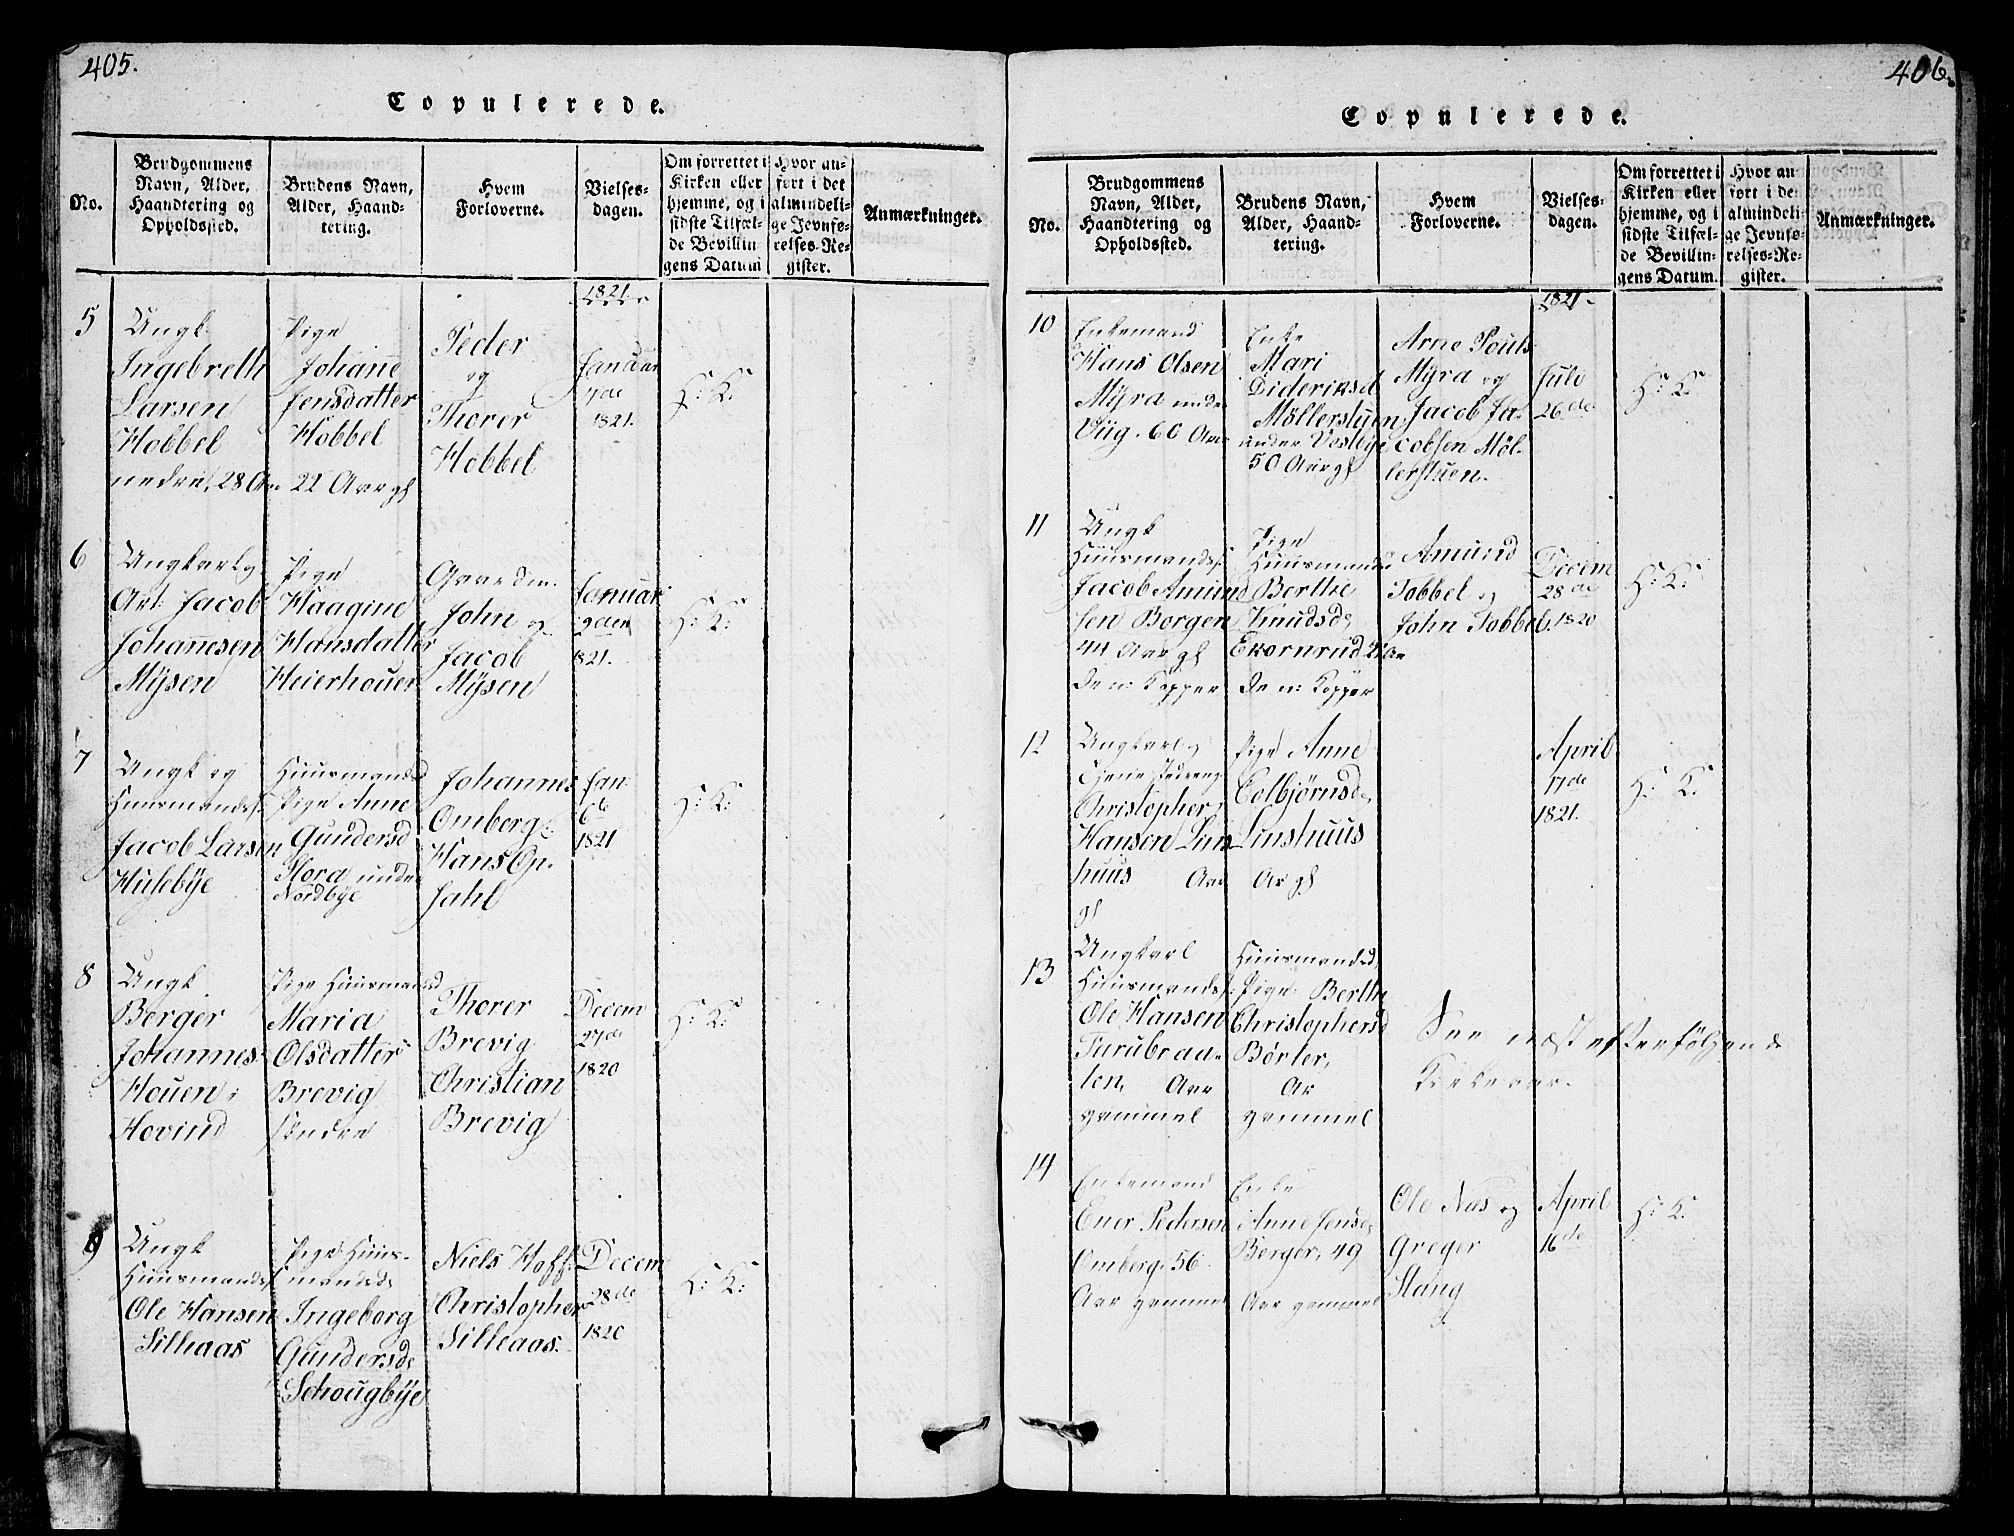 405.
Copulerede.
No.
Brudgommens
Navn, Alder,
Haandtering og
Opholdssted.
Brudens Navn,
Alder, Haand-
tering.
Hvem
Forloverne.
Vielses-
dagen.
Om forrettet i
Kirken eller
hjemme, og i
sidste Tilfæl-
de Bevillin-
gens Datum
Hvor an-
ført i det
almindeli-
ge Jevnfø-
relses-Re-
gister.
Anmærkninger.
1821
5
Ungk.
Ingebreth
Larsen
Hobbel
nedre, 28 Aar
Pige
Johanne
Jensdatter
Hobbel
22 Aar gl
Peder
og
Thorer
Hobbel
Januar
7de
1821.
H: K:
6
Ungkarl
Jacob
Johannesen
Mÿsen
Pige
Haagine
Hansdatter
Heierhouen
Gaardm.
John og
Jacob
Mÿsen
Januar
2den
1821.
H: K:
7
Ungk og
Huusmands:
Jacob Larsen
Hulebÿe
Huusmands
Pige Anne
Gundersd
Flora under
Nordbÿe
Johannes
Omberg
Hans Op-
sahl
Jan:
6te
1821
H: K:
8
Ungk
Berger
Johannes
Houen i
Hovind
Pige Huusmands
Maria
Olsdatter
Brevig
søndre
Thorer
Brevig
Christian
Brevig
Decem
27de
1820
H: K:
9
Ungk
Huusmands
Ole Hansen
Silhaas
Pige Huus-
mandsd
Ingeborg
Gundersd
Schougbÿe
Niels Hoff
Christopher
Silleaas.
Decem
28de
1820
H: K:
406.
Copulerede.
No.
Brudgommens
Navn, Alder,
Haandtering og
Opholdssted.
Brudens Navn,
Alder, Haand-
tering.
Hvem
Forloverne.
Vielses-
dagen.
Om forrettet i
Kirken eller
hjemme, og i
sidste Tilfæl-
de Bevillin-
gens Datum.
Hvor an-
ført i det
almindeli-
ge Jevnfø-
relses-Re-
gister.
Anmærkninger.
1821
10
Enkemand
Hans Olsen
Mÿra under
Viig. 60 Aar
Enke
Mari
Dideriksd
Möllerstuen
under Vestbye
50 Aar gl
Arne Pouls
Mÿra og
Jacob Ja-
cobsen Möl-
lerstuen.
Juli
26de
H: K:
11
Ungk
Huusmands:
Jacob Amund
sen Borgen
44 Aar gl
De n: Kopper
Pige
Huusmands
Berthe
Knudsd
Ekornrud
De n: Kopper
Amund
Tobbel og
John Tobbel
Decem
28de
1820
H: K:
12
Ungkarl
Christopher
Hansen Lins
huus Aar
gl
Pige Anne
Colbjørnsd
Linshuus
Ar gl
April
17de
1821.
H: K:
13
Ungkarl
Huusmands:
Ole Hansen
Furubraa-
ten, Aar
gammel
Huusmands
Pige Berthe
Christophersd
Børter,
Ar
gammel
See næst efterfølgende
Kirkeaar.
14
Enkemand
Ener Pedersen
Omberg. 56
Aar gammel
Enke
Anne Jensd
Berger, 49
Aar gammel
Ole Næs og
Greger
Stang
April
16de
H: K.